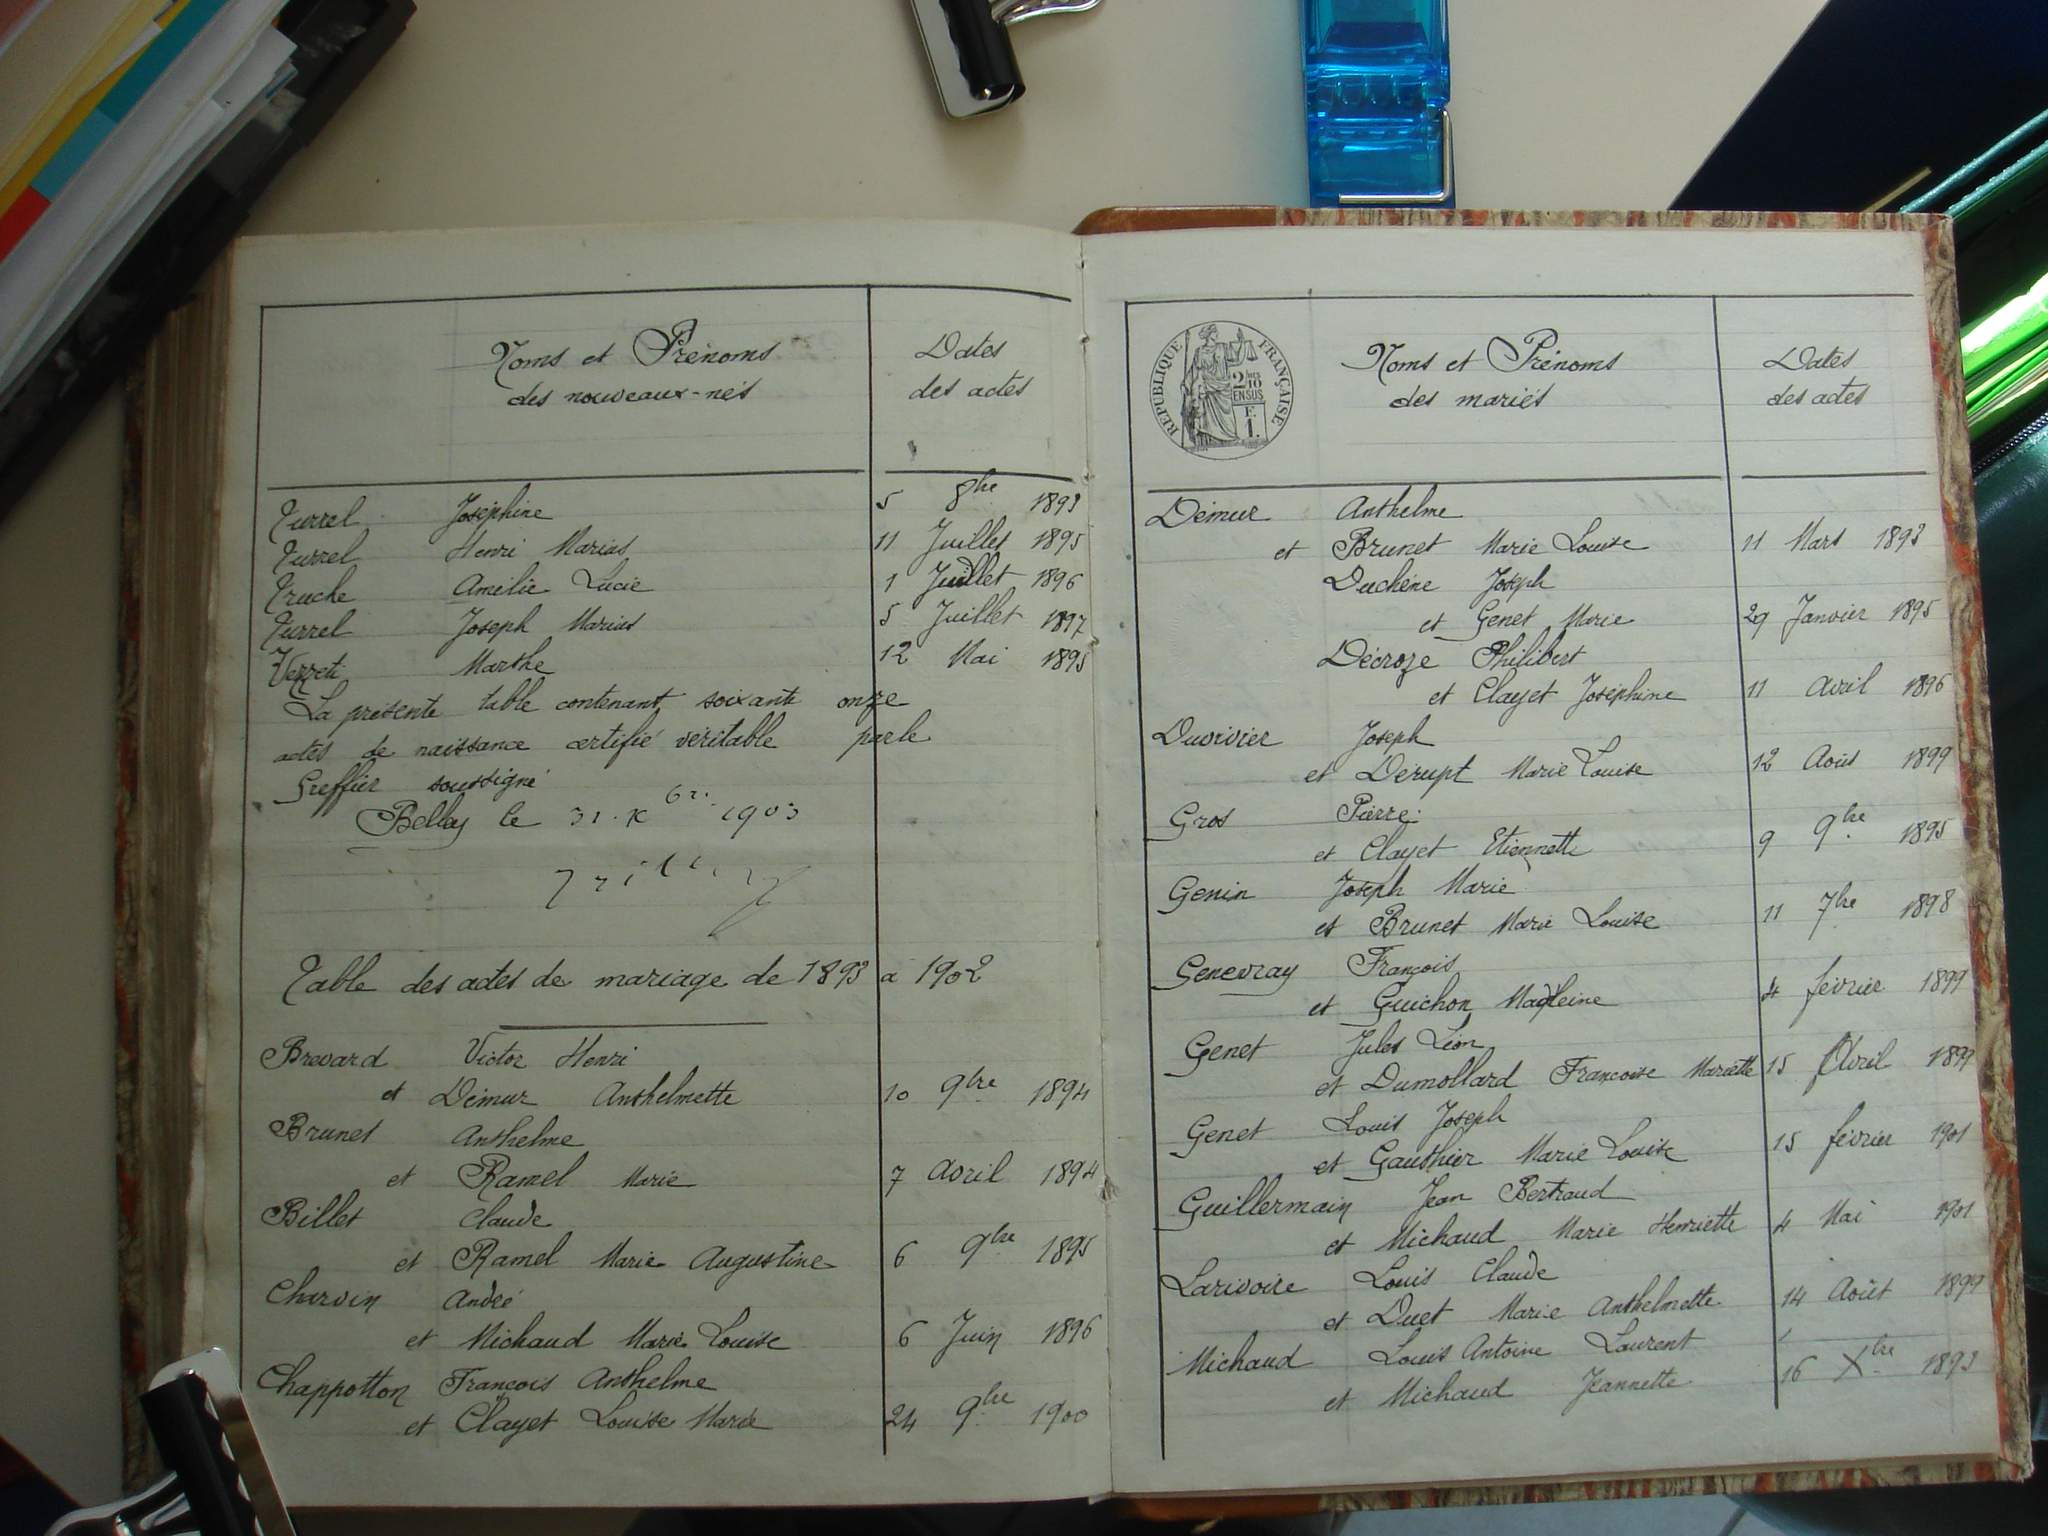 Noms et Prénoms
des nouveaux-nés
Dates
des actes
Turrel Joséphine 5 8bre 1893
Turrel Henri Marius 11 Juillet 1895
Truche Amélie Lucie 1 Juillet 1896
Turrel Joseph Marius 5 Juillet 1897
Marthe 12 Mai 1895
La présente table contenant soixante onze
actes de naissance certifié véritable par le
Greffier soussigné
Belley le 31 Xbre 1903
Table des actes de mariage de 1893 à 1902
Brevard Victor Henri
et Démur Anthelmette 10 9bre 1894
Brunet Anthelme
et Ramel Marie 7 Avril 1894
Billet Claude
et Ramel Marie Augustine 6 9bre 1895
Charvin André
et Michaud Marie Louise 6 Juin 1896
Chappotton François Anthelme
et Clayet Louise Marie 24 9bre 1900
REPUBLIQUE FRANÇAISE
2/10
EN SUS
F.
1.
Noms et Prénoms
des mariés
Dates
des actes
Démur Anthelme
et Brunet Marie Louise 11 Mars 1893
Duchêne Joseph
et Genet Marie 29 Janvier 1895
Décroze Philibert
et Clayet Joséphine 11 Avril 1896
Duvivier Joseph
et Dérupt Marie Louise 12 Août 1899
Gros Pierre
et Clayet Etiennette 9 9bre 1895
Genin Joseph Marie
et Brunet Marie Louise 11 7bre 1898
Genevray François
et Guichon Madeleine 4 février 1899
Genet Jules Léon
et Dumollard Françoise Mariette 15 Avril 1899
Genet Louis Joseph
et Gauthier Marie Louise 15 février 1901
Guillermain Jean Bertraud
et Michaud Marie Henriette 4 Mai 1901
Larivoire Louis Claude
et Duet Marie Anthelmette 14 Août 1899
Michaud Louis Antoine Laurent
et Michaud Jeannette 16 Xbre 1893